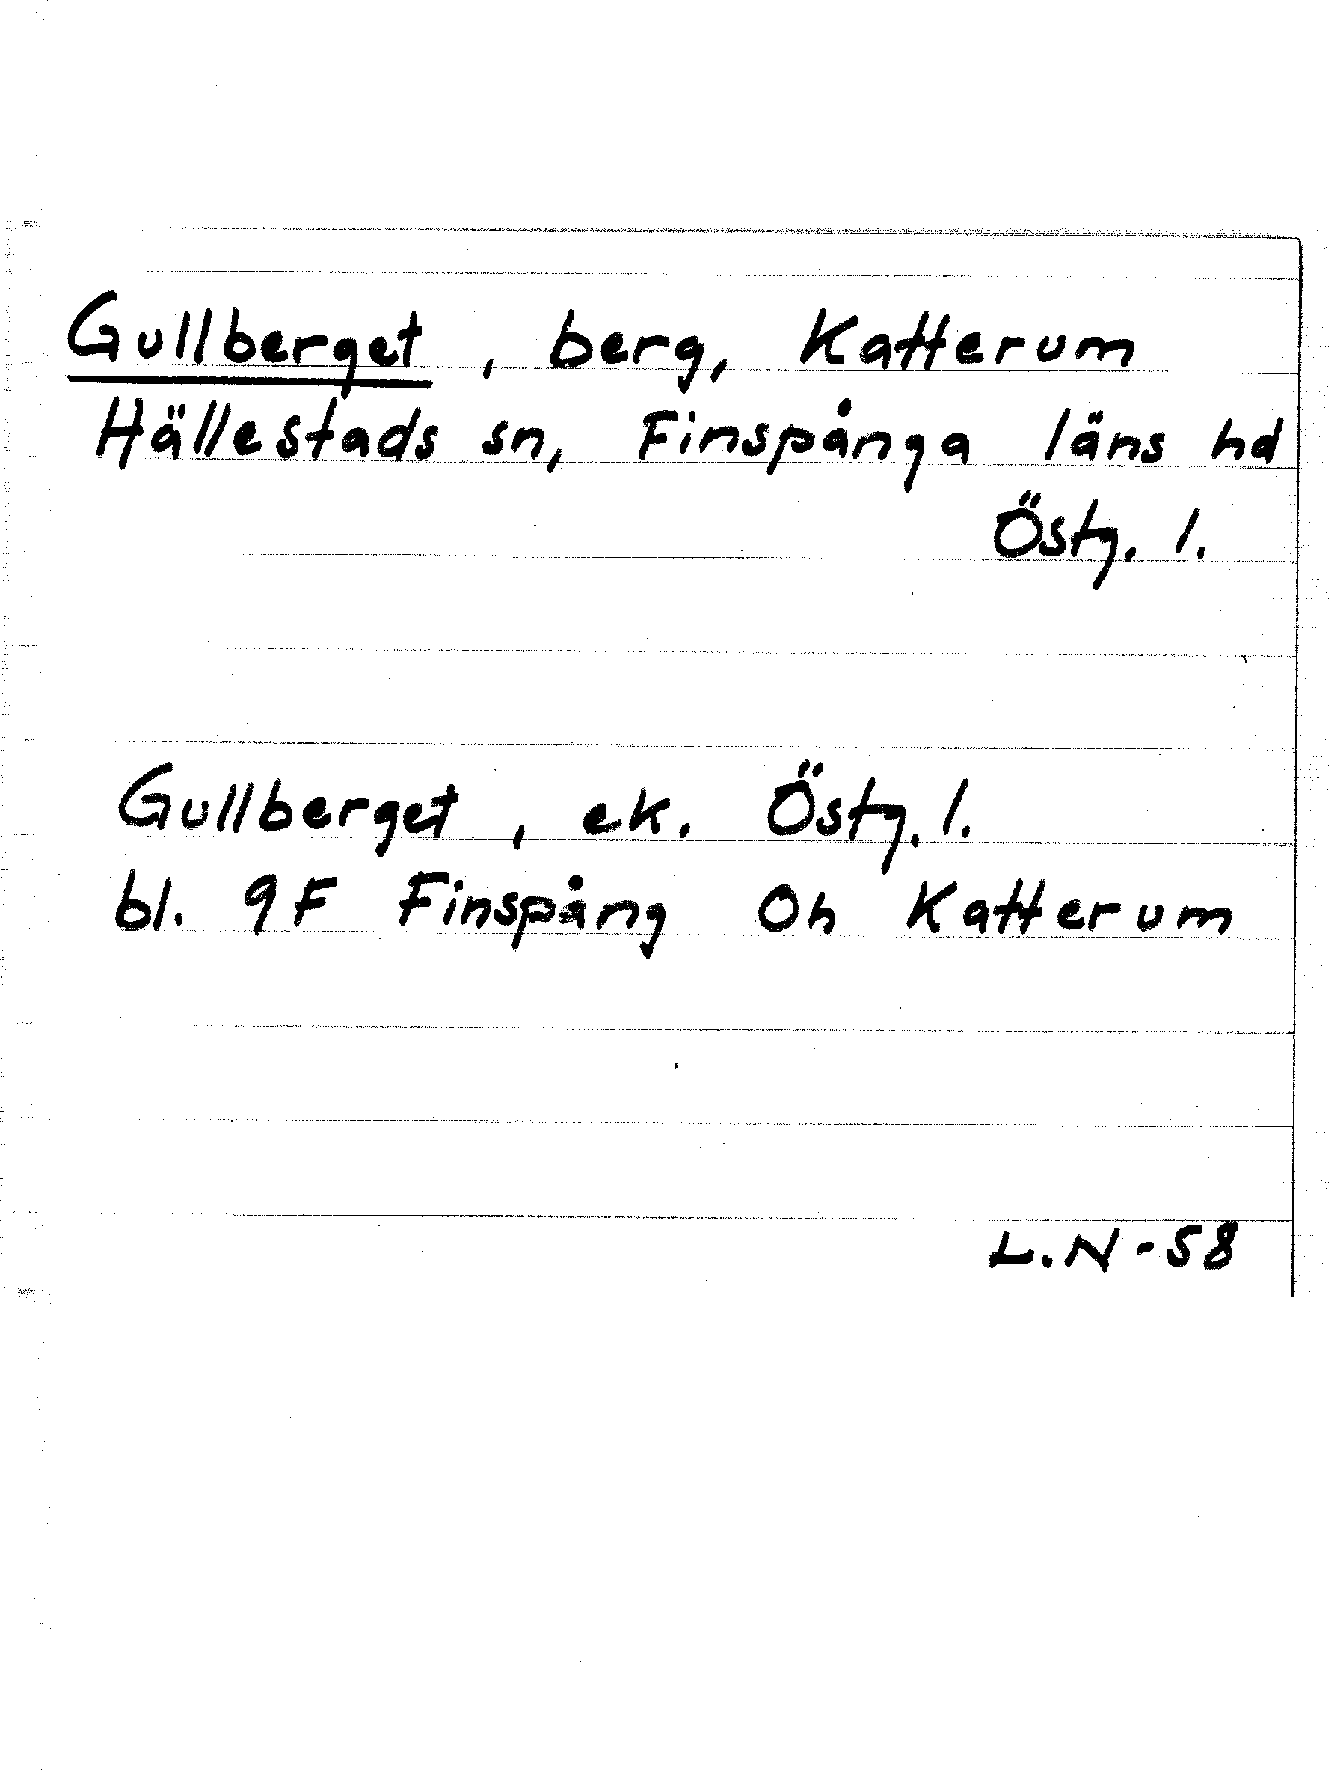 Gullberget, berg, Katterum
Hällestads sn, Finspånga läns hd
Östg. l.
Gullberget, ek. Östg. l.
bl. 9F Finspång 0h Katterum
L.N-58